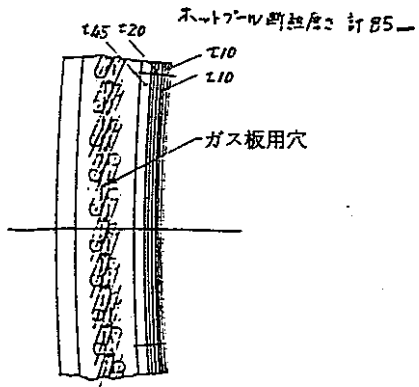 ホットプール断熱厚さ 計85
t45 t20
t10
t10
ガス板用穴